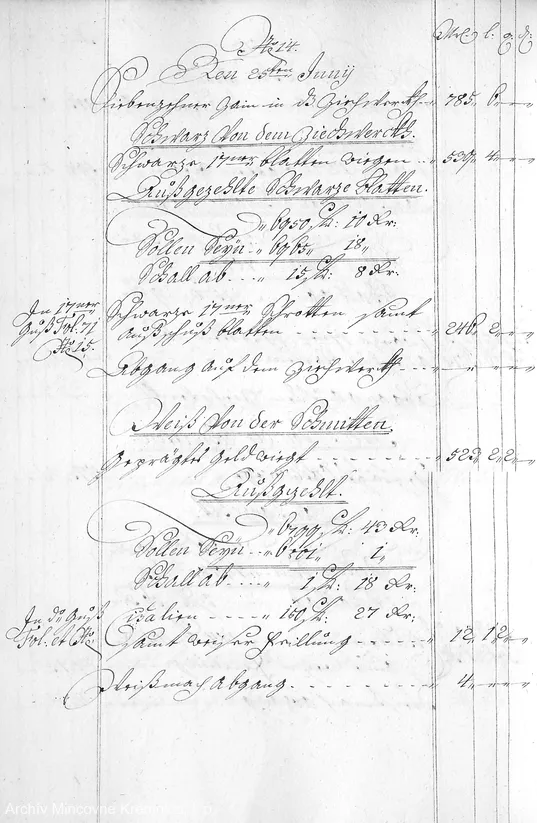 Mrl: l. q. d:
No 14.
Den 25ten Junÿ
Siebenzehner Zain in dz Ziehwerckh 785. 6.
Schwarz Von dem Zieckwerckh.
Schwarze 17ner blatten wiegen 539. 4.
Außgezehlte Schwarze blatten.
6950 St: 10 Kr:
Sollen Seÿn 6965 18
Schall ab 15 St: 8 Kr:
In 17ner Schwarze 17ner Schrotten samt
Guß Fol. 71 Außschuß blatten 246. 2.
No 15.
Abgang auf dem Ziehwerckh
Weiß Von der Schmitten.
Geprägtes Geld wiegt 523. 2. 2.
Außgezehlt.
6799 St: 43 Kr:
Sollen Seÿn 6801 1
Schall ab 1 St: 18 Kr:
In de Guß Cisalien 150 St: 27 Kr:
Fol. et No Samt weiser Feillung 12. 12.
Weißmach Abgang. 4.
Archív Mincovne Kremnica